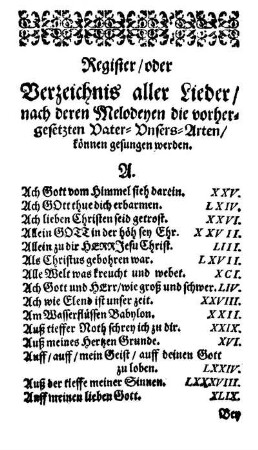 Register/oder
Verzeichnis aller Lieder/
nach deren Melodeyen die vorher-
gesetzten Vater-Vnsers-Arten/
können gesungen werden.
A.
Ach Gott vom Himmel sieh darein. XXV.
Ach GOtt thue dich erbarmen. LXIV.
Ach lieben Christen seid getrost. XXVI.
Allein GOTT in der höh sey Ehr. XXVII.
Allein zu dir HÆRR Jesu Christ. LIII.
Als Christus gebohren war. LXVII.
Alle Welt was kreucht und webet. XCI.
Ach Gott und HÆrr/wie groß und schwer. LIV.
Ach wie Elend ist unser zeit. XXVIII.
Am Wasserflüssen Babylon. XXII.
Auß tieffer Noth schrey ich zu dir. XXIX.
Auß meines Hertzen Grunde. XVI.
Auff/auff/mein Geist/auff deinen Gott
zu loben. LXXIV.
Auß der tieffe meiner Sinnen. LXXXVIII.
Auff meinen lieben Gott. XLIX.
Bey